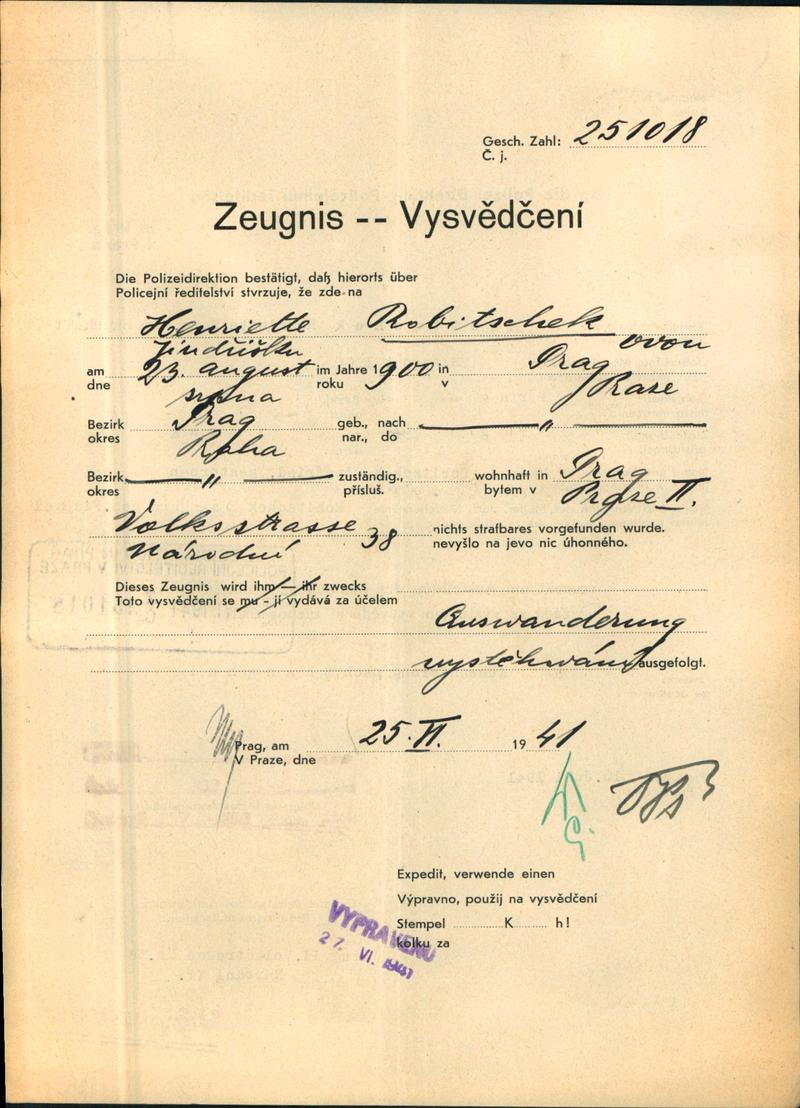 Gesch. Zahl: 251018
Č. j.
Zeugnis -- Vysvědčení
Die Polizeidirektion bestätigt, daß hierorts über
Policejní ředitelství stvrzuje, že zde-na
Henriette Robitschek
Jindřišku ovou
am 23. august im Jahre 1900 in Prag
dne srpna roku v Praze
Bezirk Prag geb., nach — " —
okres Praha nar., do
Bezirk — " — zuständig., wohnhaft in Prag
okres přísluš. bytem v Praze II.
Volksstrasse 38 nichts strafbares vorgefunden wurde.
Národní nevyšlo na jevo nic úhonného.
Dieses Zeugnis wird ihm — ihr zwecks
Toto vysvědčení se mu - jí vydává za účelem
Auswanderung
vystěhování ausgefolgt.
Prag, am 25. VI. 1941
V Praze, dne
Expedit, verwende einen
Výpravno, použij na vysvědčení
Stempel K h!
kolku za
VYPRAVENO
27. VI. 1941